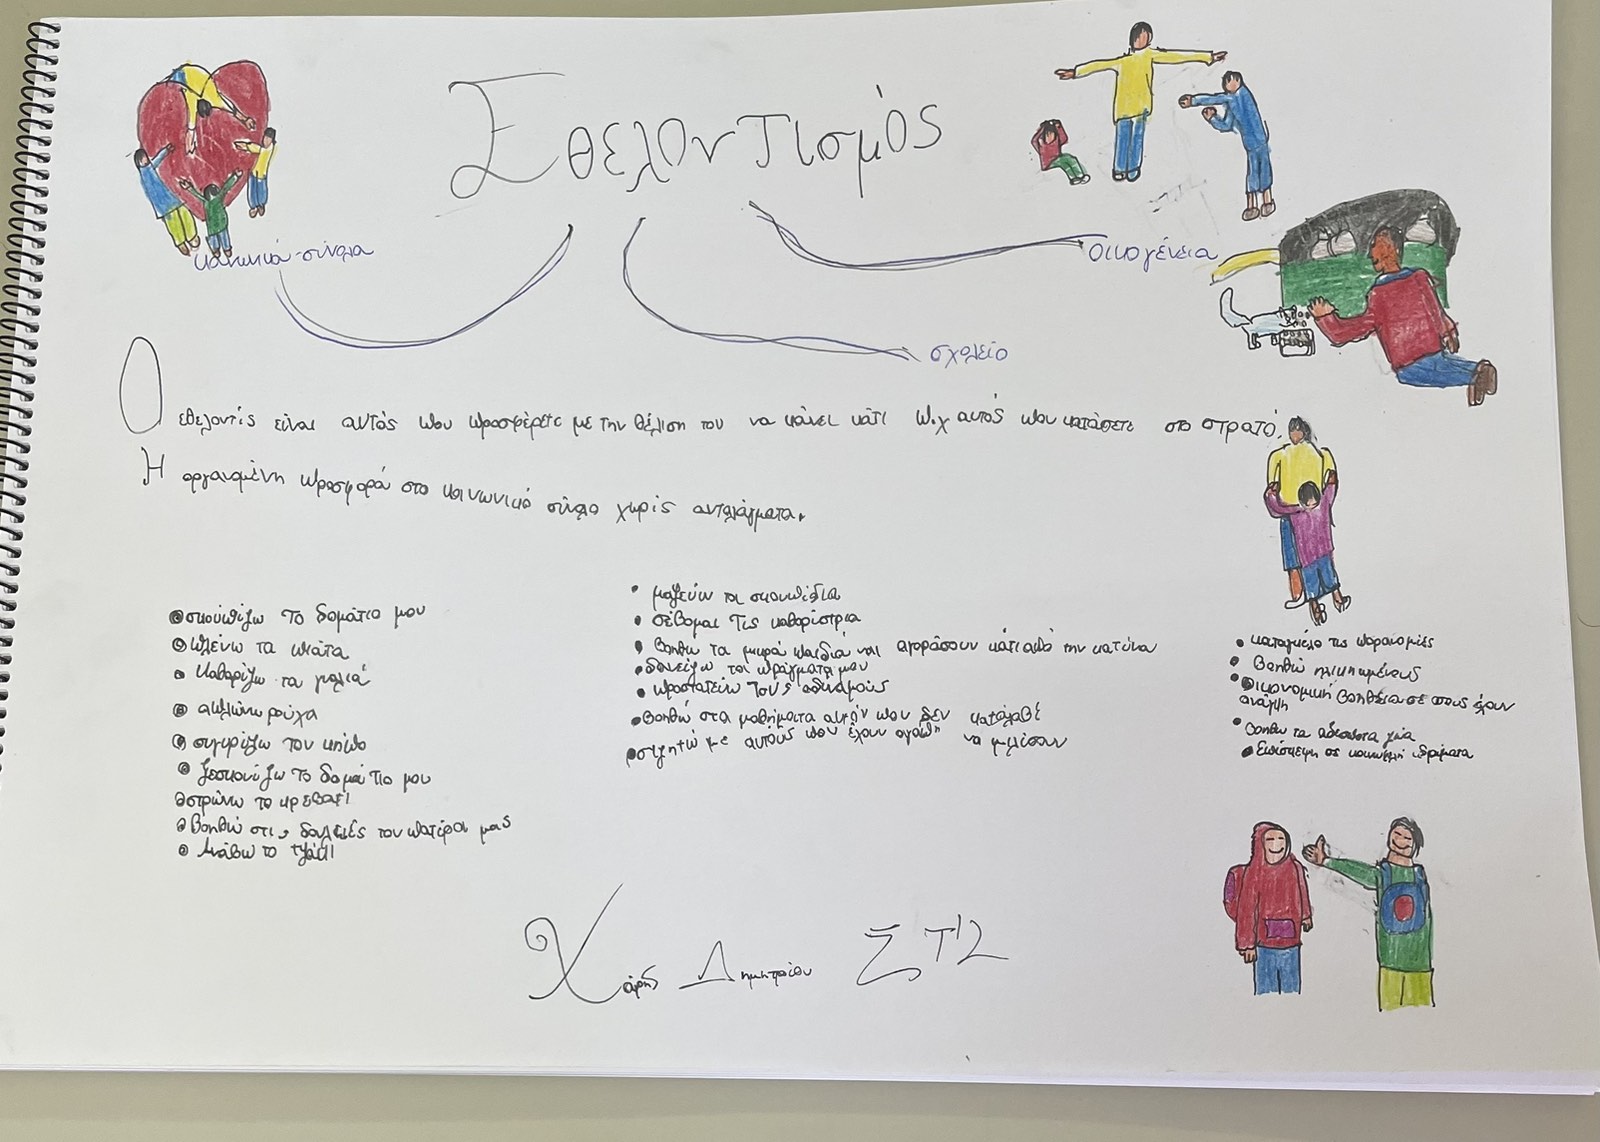 Εθελοντισμός
κοινωνικά σύνολα
οικογένεια
σχολείο
Ο εθελοντής είναι αυτός που προσφέρετε με την θέλιση του να κάνει κάτι π.χ αυτός που κατάσετε στο στρατό.
Η οργανομένη προσφορά στο κοινωνικό σύνολο χωρίς ανταλάγματα.
σκουπίζω το δομάτιο μου
πλένω τα πιάτα
καθαρίζω τα γιαλιά
απλώνω ρούχα
συγιρίζω τον κήπο
ξεσκονίζω το δομάτιο μου
στρώνω το κρεβάτι
βοηθώ στις δουλειές τον πατέρα μας
Ανάβω το τζάκι
μαζεύω τα σκουπίδια
σέβομαι τις καθαρίστρια
βοηθώ τα μικρά παιδιά να αγοράσουν κάτι από την κατίνα
δανείζω τα πράγματα μου
προστατεύω τους αδίναμους
βοηθώ στα μαθήματα αυτόν που δεν κατάλαβε
σιζητώ με αυτούς που έχουν ανάγκη να μιλίσουν
καταγγέλω τις παρανομίες
βοηθώ ηλικιωμένους
Οικονομική βοήθεια σε όπους έχουν
ανάγκη
βοηθώ τα αδέσποτα ζώα
Επίσκεψη σε κοινωνικά ιδρίματα
Χάρης Δημητρίου ΣΤ'2